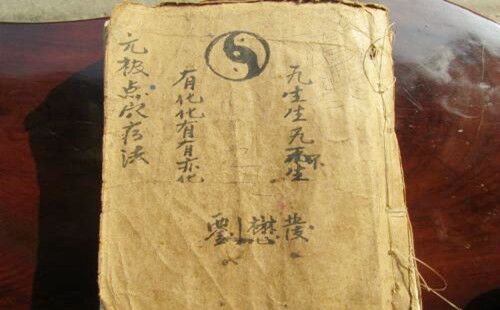 无生生无不生
有化化有有亦化
元极点穴疗法
劉懋發